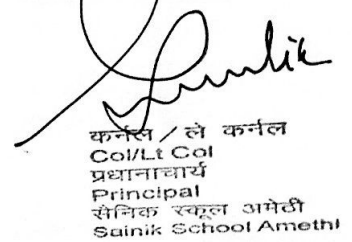 कर्नल / ले कर्नल
Col/Lt Col
प्रधानाचार्य
Principal
सैनिक स्कूल अमेठी
Sainik School Amethi